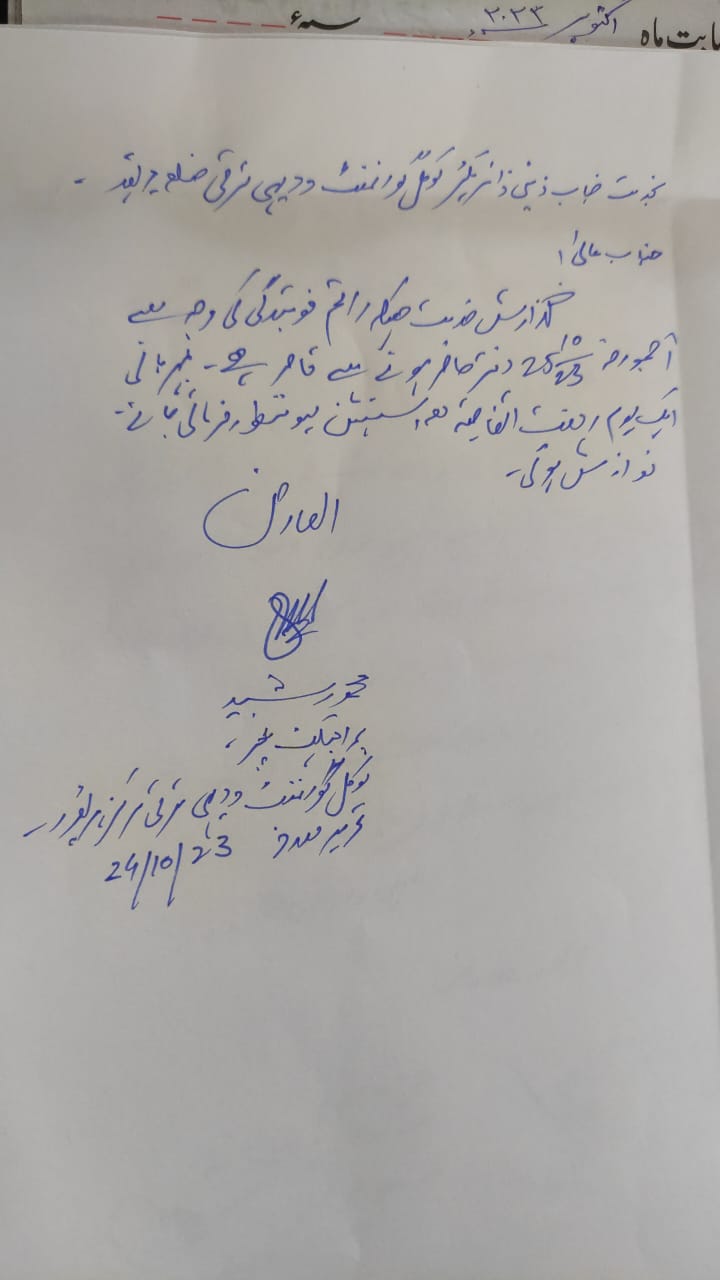 بابت ماہ اکتوبر ۲۰۲۳ سنہء
بخدمت جناب ڈپٹی ڈائریکٹر لوکل گورنمنٹ و دیہی ترقی ضلع
جناب عالی!
گذارش خدمت ہیکہ راقم فوتیدگی کی وجہ سے
آمورخہ 25/10/23 دفتر حاضر ہونے سے قاصر ہے۔ مہربانی
ایک یوم رخصت اتفاقیہ معہ اسٹیشن لیو منظور فرمائی جائے۔
نوازش ہوگی۔
العارض
رشید
پراجیکٹ
لوکل گورنمنٹ و دیہی ترقی مرکز
تحریر مورخہ 24/10/23